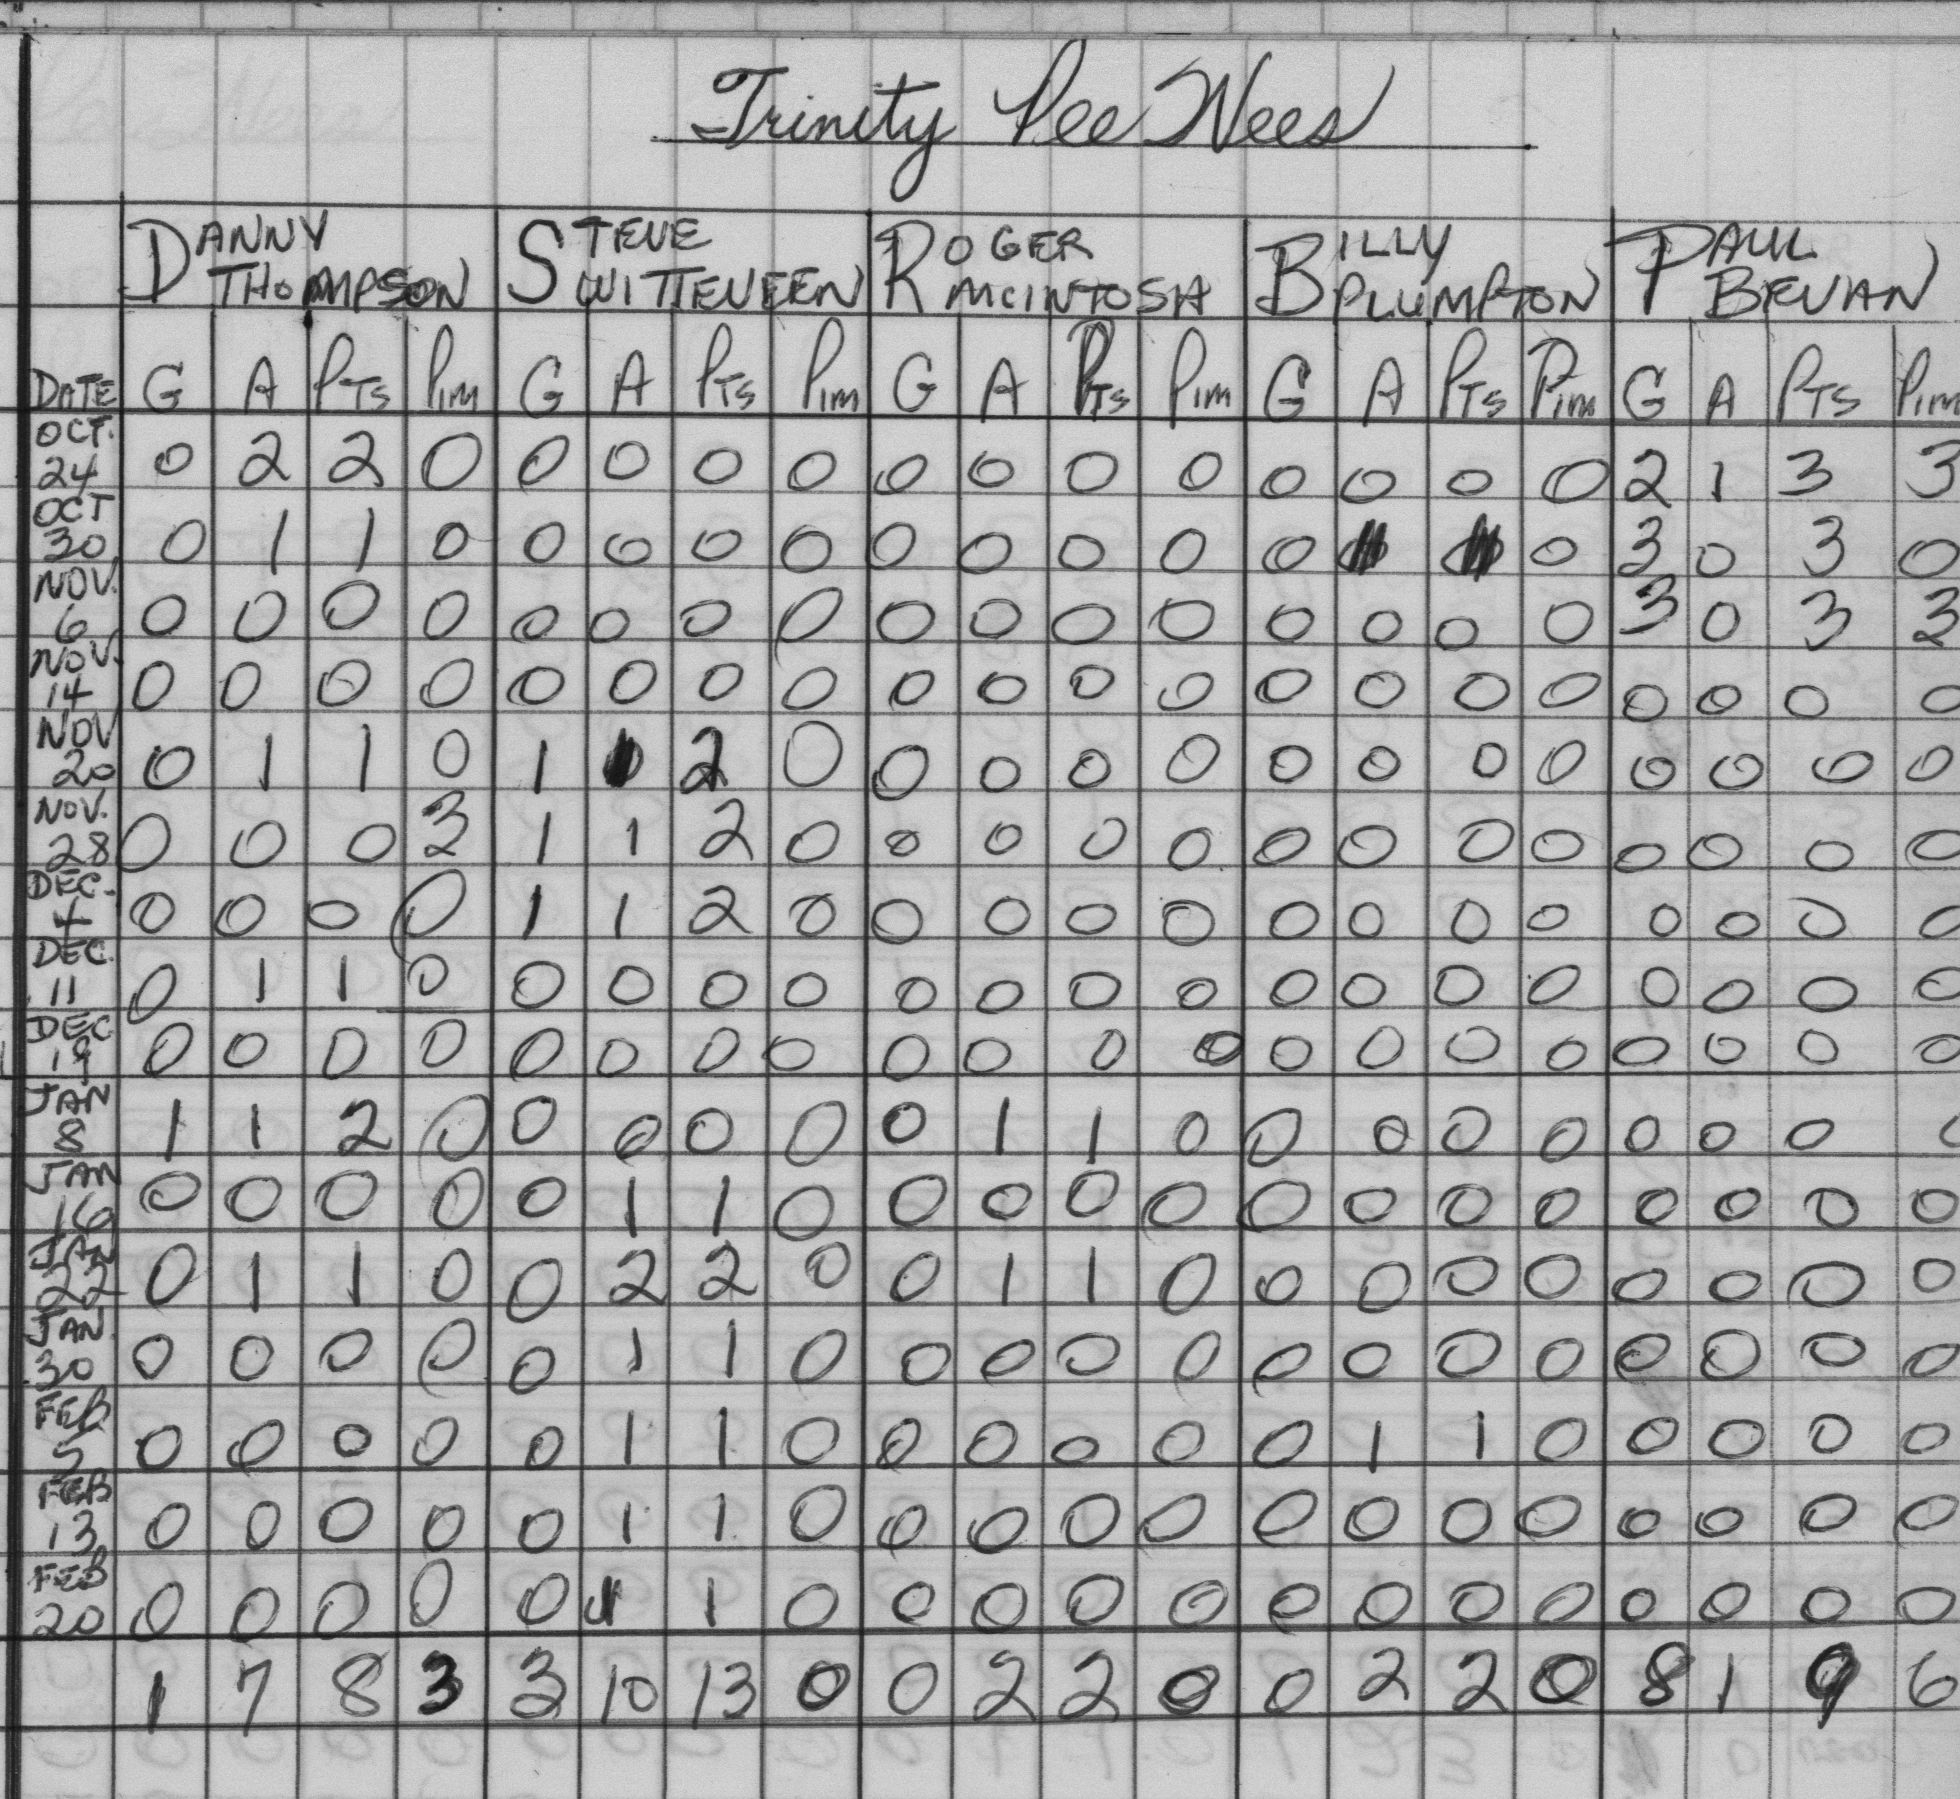 Trinity Pee Wees
DANNY THOMPSON STEVE WITTEVEEN ROGER MCINTOSH BILLY PLUMPTON PAUL BEVAN
DATE G A PTS PIM G A PTS PIM G A PTS PIM G A PTS PIM G A PTS PIM
OCT. 24 0 2 2 0 0 0 0 0 0 0 0 0 0 0 0 0 2 1 3 3
OCT 30 0 1 1 0 0 0 0 0 0 0 0 0 0 1 1 0 3 0 3 0
NOV. 6 0 0 0 0 0 0 0 0 0 0 0 0 0 0 0 0 3 0 3 3
NOV. 14 0 0 0 0 0 0 0 0 0 0 0 0 0 0 0 0 0 0 0 0
NOV 20 0 1 1 0 1 1 2 0 0 0 0 0 0 0 0 0 0 0 0 0
NOV. 28 0 0 0 3 1 1 2 0 0 0 0 0 0 0 0 0 0 0 0 0
DEC. 4 0 0 0 0 1 1 2 0 0 0 0 0 0 0 0 0 0 0 0 0
DEC. 11 0 1 1 0 0 0 0 0 0 0 0 0 0 0 0 0 0 0 0 0
DEC 19 0 0 0 0 0 0 0 0 0 0 0 0 0 0 0 0 0 0 0 0
JAN 8 1 1 2 0 0 0 0 0 0 1 1 0 0 0 0 0 0 0 0 0
JAN 16 0 0 0 0 0 1 1 0 0 0 0 0 0 0 0 0 0 0 0 0
JAN 22 0 1 1 0 0 2 2 0 0 1 1 0 0 0 0 0 0 0 0 0
JAN. 30 0 0 0 0 0 1 1 0 0 0 0 0 0 0 0 0 0 0 0 0
FEB 5 0 0 0 0 0 1 1 0 0 0 0 0 0 1 1 0 0 0 0 0
FEB 13 0 0 0 0 0 1 1 0 0 0 0 0 0 0 0 0 0 0 0 0
FEB 20 0 0 0 0 0 1 1 0 0 0 0 0 0 0 0 0 0 0 0 0
1 7 8 3 3 10 13 0 0 2 2 0 0 2 2 0 8 1 9 6